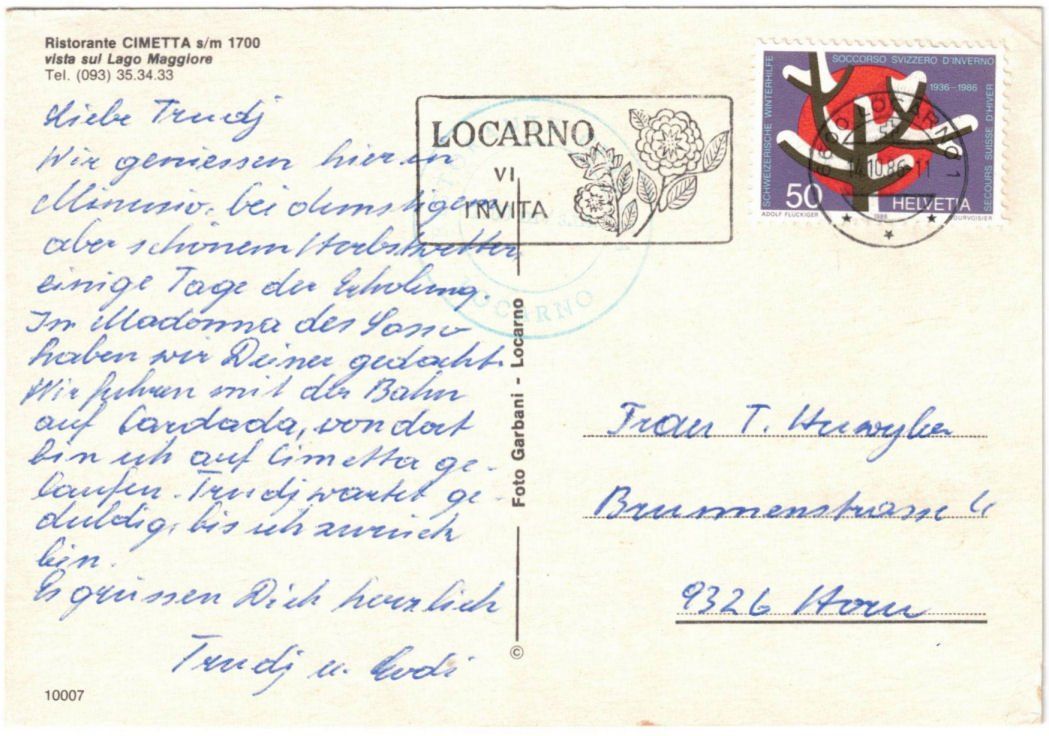 Ristorante CIMETTA s/m 1700
vista sul Lago Maggiore
Tel. (093) 35.34.33
Liebe Trudj
Wir geniessen hier in
Minusio, bei dunstigem
aber schönem Herbstwetter
einige Tage der Erholung.
In Madonna del Sasso
haben wir Deiner gedacht.
Wir fuhren mit der Bahn
auf Cardada, von dort
bin ich auf Cimetta ge-
laufen. Trudj wartet ge-
duldig, bis ich zurück
bin.
Es grüssen Dich herzlich
Trudj u.
10007
LOCARNO
VI
INVITA
LOCARNO
SCHWEIZERISCHE WINTERHILFE
SOCCORSO SVIZZERO D'INVERNO
SECOURS SUISSE D'HIVER
1936–1986
50
HELVETIA
ADOLF FLÜCKIGER
1986
COURVOISIER
6600 LOCARNO 1
14.10.86-11
Foto Garbani - Locarno
©
Frau T. Huwyler
Brunnenstrasse
9326 Horn